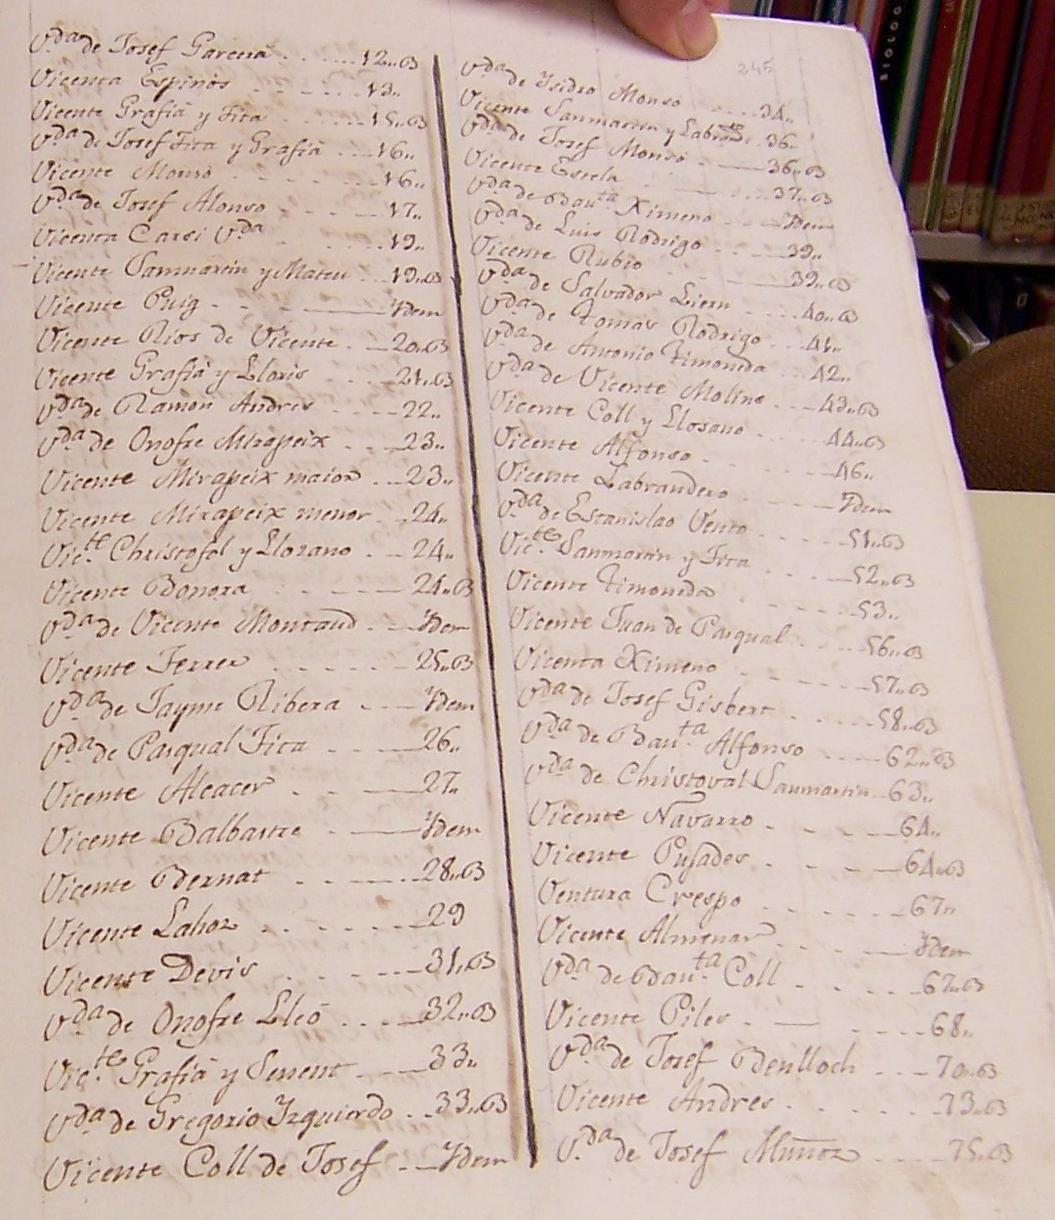 V.da de Josef Garcera ...... 12..63
Vicenta Espinós ...... 13..
Vicente Grafiá y Fita ...... 15..63
V.da de Josef Fita y Grafiá .... 16..
Vicente Monsó ...... 16..
V.da de Josef Alonso ...... 17..
Vicenta Carsi V.da ...... 19..
Vicente Sanmartin y Mateu ... 19..63
Vicente Puig ...... Ydem
Vicente Rios de Vicente ... 20..63
Vicente Grafiá y Lloris .... 21..63
V.da de Ramon Andres ..... 22..
V.da de Onofre Mirapeix .... 23..
Vicente Mirapeix maior ... 23..
Vicente Mirapeix menor ... 24..
Vic.te Christofol y Llozano ... 24..
Vicente Bonora ...... 24..63
V.da de Vicente Montaud ... Ydem
Vicente Ferrer ...... 25..63
V.da de Jayme Ribera .... Ydem
V.da de Pasqual Fita ..... 26..
Vicente Alcacer ..... 27..
Vicente Balbastre .... Ydem
Vicente Bernat ..... 28..63
Vicente Lahoz ...... 29
Vicente Devis ...... 31..63
V.da de Onofre Lleó ..... 32..63
Vic.te Grafiá y Senent .... 33..
V.da de Gregorio Yzquierdo ... 33..63
Vicente Coll de Josef ... Ydem
245
V.da de Ysidro Monsó ..... 34..
Vicente Sanmartin y Labrand.ro 36..
V.da de Josef Monsó .... 36..63
Vicente Escela ..... 37..63
V.da de Bau.ta Ximeno .... Ydem
V.da de Luis Rodrigo .... 39..
Vicente Rubio ..... 39..63
V.da de Salvador Liern .... 40..63
V.da de Tomás Rodrigo ... 41..
V.da de Antonio Timoneda ... 42..
V.da de Vicente Molins .... 43..63
Vicente Coll y Llosano ..... 44..63
Vicente Alfonso ..... 46..
Vicente Labrandero .... Ydem
V.da de Estanislao Vento ..... 51..63
Vic.te Sanmartin y Fita ..... 52..63
Vicente Timoneda ..... 53..
Vicente Juan de Pasqual .... 56..63
Vicenta Ximeno ..... 57..63
V.da de Josef Gisbert ..... 58..63
V.da de Bau.ta Alfonso ..... 62..63
V.da de Christoval Sanmartin .. 63..
Vicente Navarro ..... 64..
Vicente Pusades ..... 64..63
Ventura Crespo ..... 67..
Vicente Almenar ..... Ydem
V.da de Bau.ta Coll ..... 67..63
Vicente Piles ..... 68..
V.da de Josef Benlloch .... 70..63
Vicente Andres ..... 73..63
V.da de Josef Muñoz ..... 75..63